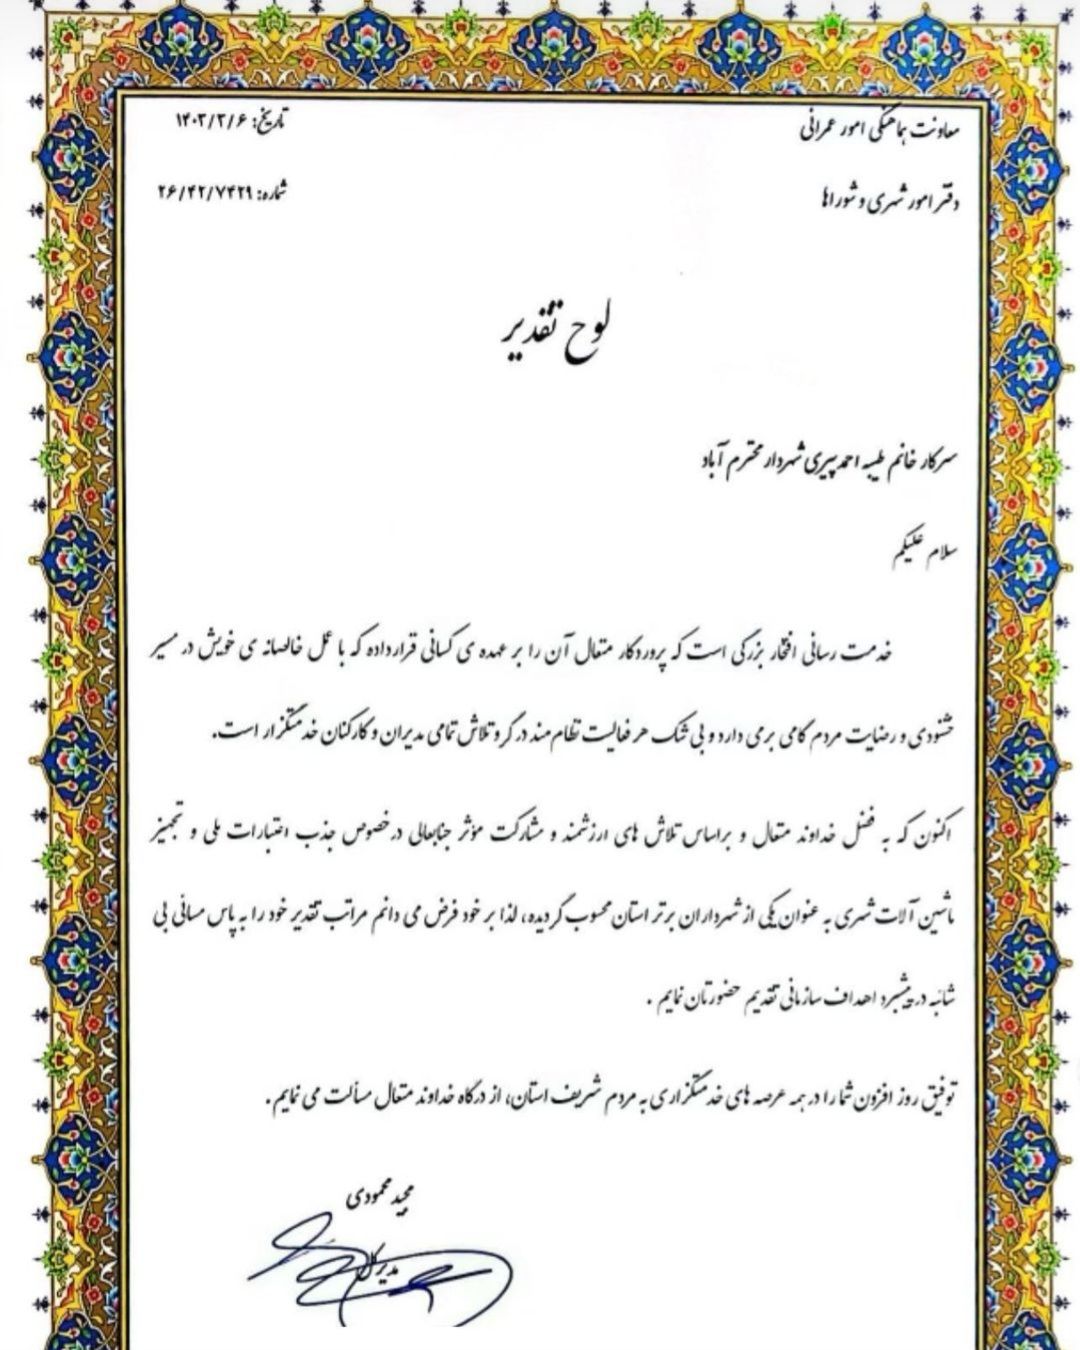 معاونت هماهنگی امور عمرانی
تاریخ: ۱۴۰۳/۲/۶
دفتر امور شهری و شوراها
شماره: ۲۶/۴۲/۷۴۲۹
لوح تقدیر
سرکار خانم طیبه احمد پیری شهردار محترم آباد
سلام علیکم
خدمت رسانی افتخار بزرگی است که پروردگار متعال آن را بر عهده ی کسانی قرار داده که با عمل خالصانه ی خویش در مسیر
خشنودی و رضایت مردم گامی برمی دارد و بی شک هر فعالیت نظام مند در گرو تلاش تمامی مدیران و کارکنان خدمتگزار است.
اکنون که به فضل خداوند متعال و براساس تلاش های ارزشمند و مشارکت مؤثر جنابعالی درخصوص جذب اعتبارات ملی و تجهیز
ماشین آلات شهری به عنوان یکی از شهرداران برتر استان محسوب گردیده، لذا بر خود فرض می دانم مراتب تقدیر خود را به پاس مساعی بی
شائبه در پیشبرد اهداف سازمانی تقدیم حضورتان نمایم .
توفیق روز افزون شما را در همه عرصه های خدمتگزاری به مردم شریف استان، از درگاه خداوند متعال مسألت می نمایم.
مجید محمودی
مدیرکل